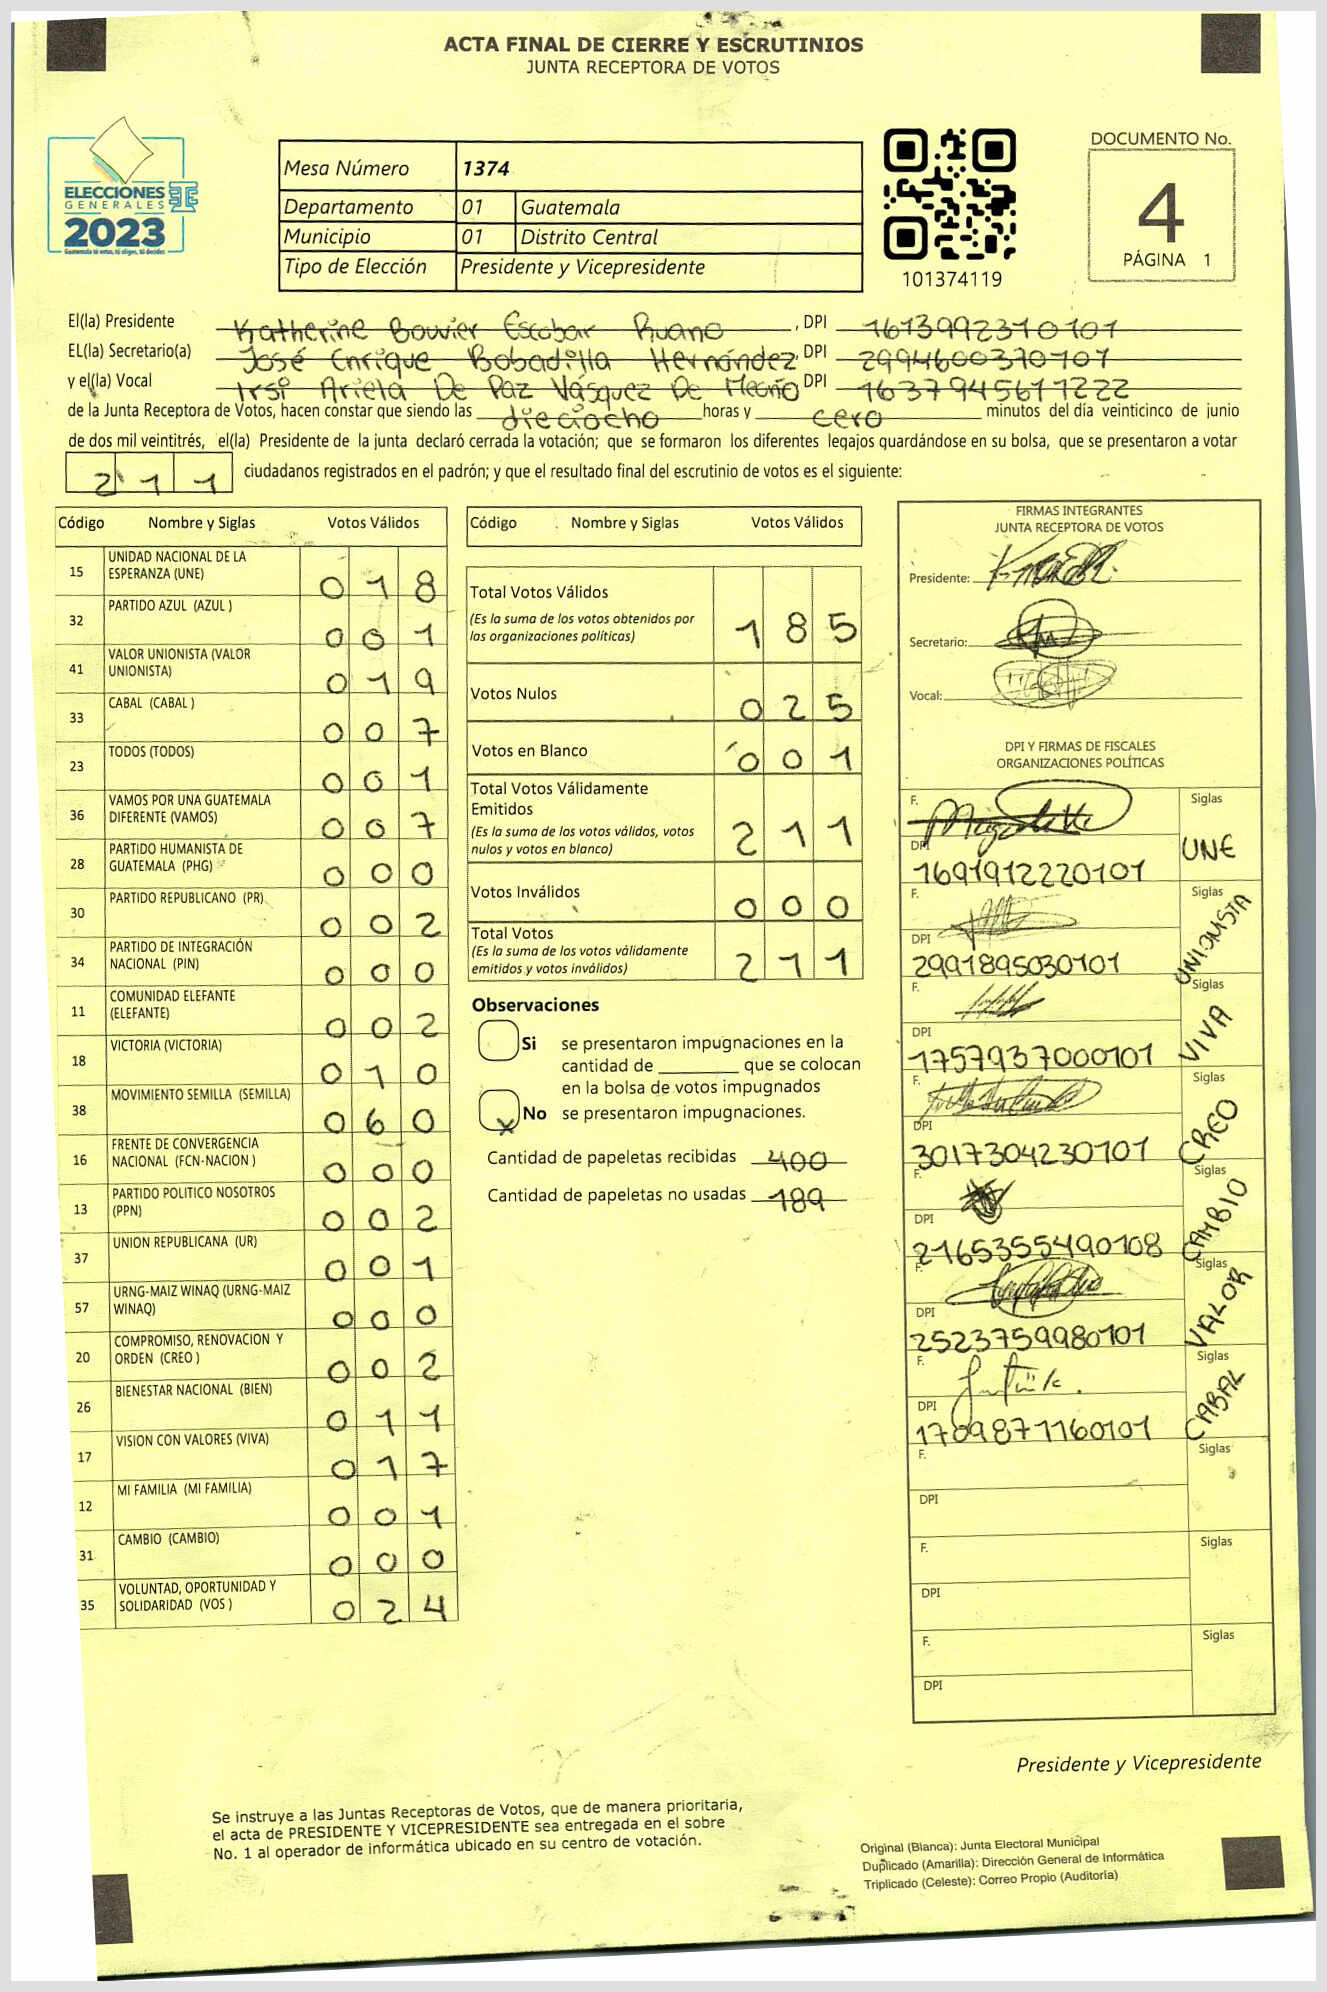 ACTA FINAL DE CIERRE Y ESCRUTINIOS
JUNTA RECEPTORA DE VOTOS
ELECCIONES
GENERALES
2023
Guatemala tú votas, tú eliges, tú decides
Mesa Número 1374
Departamento 01 Guatemala
Municipio 01 Distrito Central
Tipo de Elección Presidente y Vicepresidente
101374119
DOCUMENTO No.
4
PÁGINA 1
El(la) Presidente Katherine Bouvier Escobar Ruano, DPI 1613992310101
EL(la) Secretario(a) José Enrique Bobadilla Hernández, DPI 2994600370101
y el(la) Vocal Irsi Ariela De Paz Vásquez De DPI 1637945611222
de la Junta Receptora de Votos, hacen constar que siendo las dieciocho horas y cero minutos del día veinticinco de junio
de dos mil veintitrés, el(la) Presidente de la junta declaró cerrada la votación; que se formaron los diferentes legajos guardándose en su bolsa, que se presentaron a votar
211 ciudadanos registrados en el padrón; y que el resultado final del escrutinio de votos es el siguiente:
Código Nombre y Siglas Votos Válidos
15 UNIDAD NACIONAL DE LA ESPERANZA (UNE) 018
32 PARTIDO AZUL (AZUL ) 001
41 VALOR UNIONISTA (VALOR UNIONISTA) 019
33 CABAL (CABAL ) 007
23 TODOS (TODOS) 001
36 VAMOS POR UNA GUATEMALA DIFERENTE (VAMOS) 007
28 PARTIDO HUMANISTA DE GUATEMALA (PHG) 000
30 PARTIDO REPUBLICANO (PR) 002
34 PARTIDO DE INTEGRACIÓN NACIONAL (PIN) 000
11 COMUNIDAD ELEFANTE (ELEFANTE) 002
18 VICTORIA (VICTORIA) 010
38 MOVIMIENTO SEMILLA (SEMILLA) 060
16 FRENTE DE CONVERGENCIA NACIONAL (FCN-NACION ) 000
13 PARTIDO POLITICO NOSOTROS (PPN) 002
37 UNION REPUBLICANA (UR) 001
57 URNG-MAIZ WINAQ (URNG-MAIZ WINAQ) 000
20 COMPROMISO, RENOVACION Y ORDEN (CREO ) 002
26 BIENESTAR NACIONAL (BIEN) 011
17 VISION CON VALORES (VIVA) 017
12 MI FAMILIA (MI FAMILIA) 001
31 CAMBIO (CAMBIO) 000
35 VOLUNTAD, OPORTUNIDAD Y SOLIDARIDAD (VOS ) 024
Código Nombre y Siglas Votos Válidos
Total Votos Válidos 185
(Es la suma de los votos obtenidos por
las organizaciones políticas)
Votos Nulos 025
Votos en Blanco 001
Total Votos Válidamente
Emitidos 211
(Es la suma de los votos válidos, votos
nulos y votos en blanco)
Votos Inválidos 000
Total Votos 211
(Es la suma de los votos válidamente
emitidos y votos inválidos)
Observaciones
Si se presentaron impugnaciones en la
cantidad de ________ que se colocan
en la bolsa de votos impugnados
x No se presentaron impugnaciones.
Cantidad de papeletas recibidas 400
Cantidad de papeletas no usadas 189
FIRMAS INTEGRANTES
JUNTA RECEPTORA DE VOTOS
Presidente:
Secretario:
Vocal:
DPI Y FIRMAS DE FISCALES
ORGANIZACIONES POLÍTICAS
F. Siglas
DPI 1691912220101 UNE
F. Siglas
DPI 2991895030101 UNIONISTA
F. Siglas
DPI 1757937000101 VIVA
F. Siglas
DPI 3017304230101 CREO
F. Siglas
DPI 2165355490108 CAMBIO
F. Siglas
DPI 2523759980101 VALOR
F. Siglas
DPI 1709871160101 CABAL
F. Siglas
DPI
F. Siglas
DPI
F. Siglas
DPI
Presidente y Vicepresidente
Se instruye a las Juntas Receptoras de Votos, que de manera prioritaria,
el acta de PRESIDENTE Y VICEPRESIDENTE sea entregada en el sobre
No. 1 al operador de informática ubicado en su centro de votación.
Original (Blanca): Junta Electoral Municipal
Duplicado (Amarilla): Dirección General de Informática
Triplicado (Celeste): Correo Propio (Auditoría)